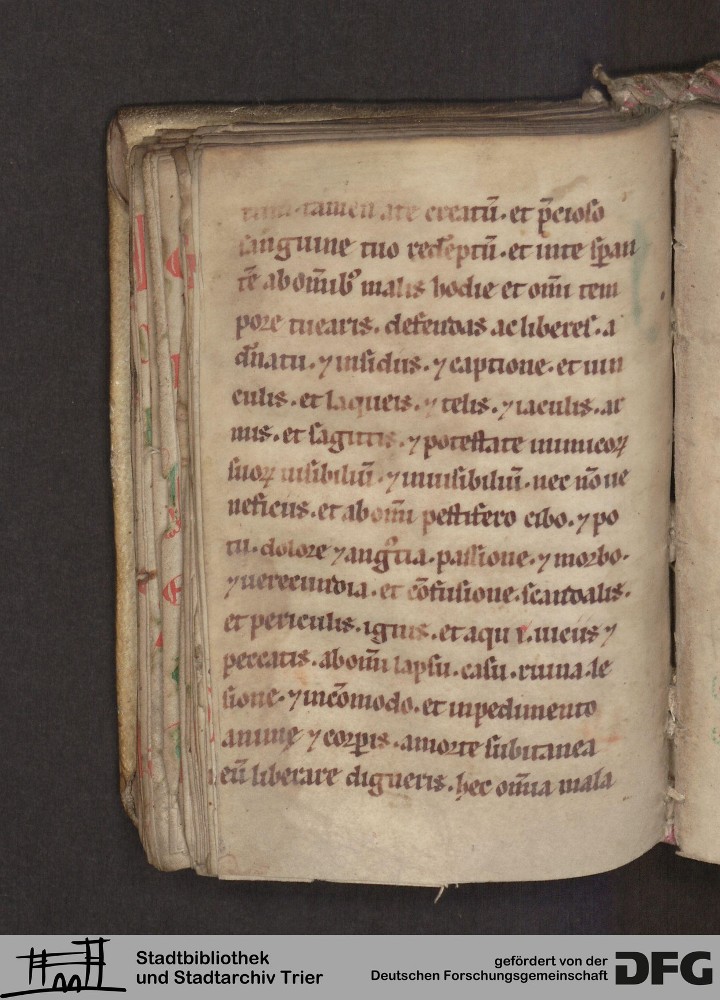 tamen a te creatū· et p̄cioso
sanguine tuo redēptū· et in te sꝑan
tē ab om̄ib⁹ malis hodie et om̄i tem
pore tuearis· defendas ac liberes· a
dānatu· ⁊ insidiis· ⁊ captione· et uin
culis· et laqueis· ⁊ telis· ⁊ iaculis· ar
mis· et sagittis· ⁊ potestate inimicoꝝ
suoꝝ uisibiliū· ⁊ inuisibiliū· nec nō ue
neficiis· et ab om̄i pestifero cibo· ⁊ po
tu· dolore ⁊ angustia· passione· ⁊ morbo·
⁊ uerecundia· et cōfusione· scandalis·
et periculis· ignis· et aqu uiciis ⁊
peccatis· ab om̄i lapsu· casu· ruina· le
sione· ⁊ incōmodo· et inpedimento
animę ⁊ corꝑis· a morte subitanea
eū liberare digneris· hec om̄ia mala
Stadtbibliothek
und Stadtarchiv Trier
gefördert von der
Deutschen Forschungsgemeinschaft
DFG